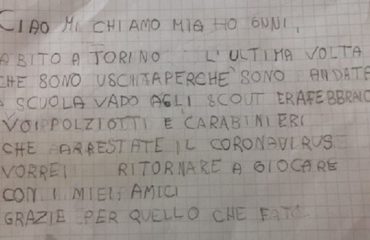 CIAO MI CHIAMO MIA HO 6NNI,
ABITO A TORINO L'ULTIMA VOLTA
CHE SONO USCITAPERCHÈ SONO ANDATA
A SCUOLA VADO AGLI SCOUT ERAFEBBRAIO
VOI POLZIOTTI E CARABINIERI
CHE ARRESTATE IL CORONAVIRUS
VORREI RITORNARE A GIOCARE
CON I MIEI AMICI
GRAZIE PER QUELLO CHE FATE